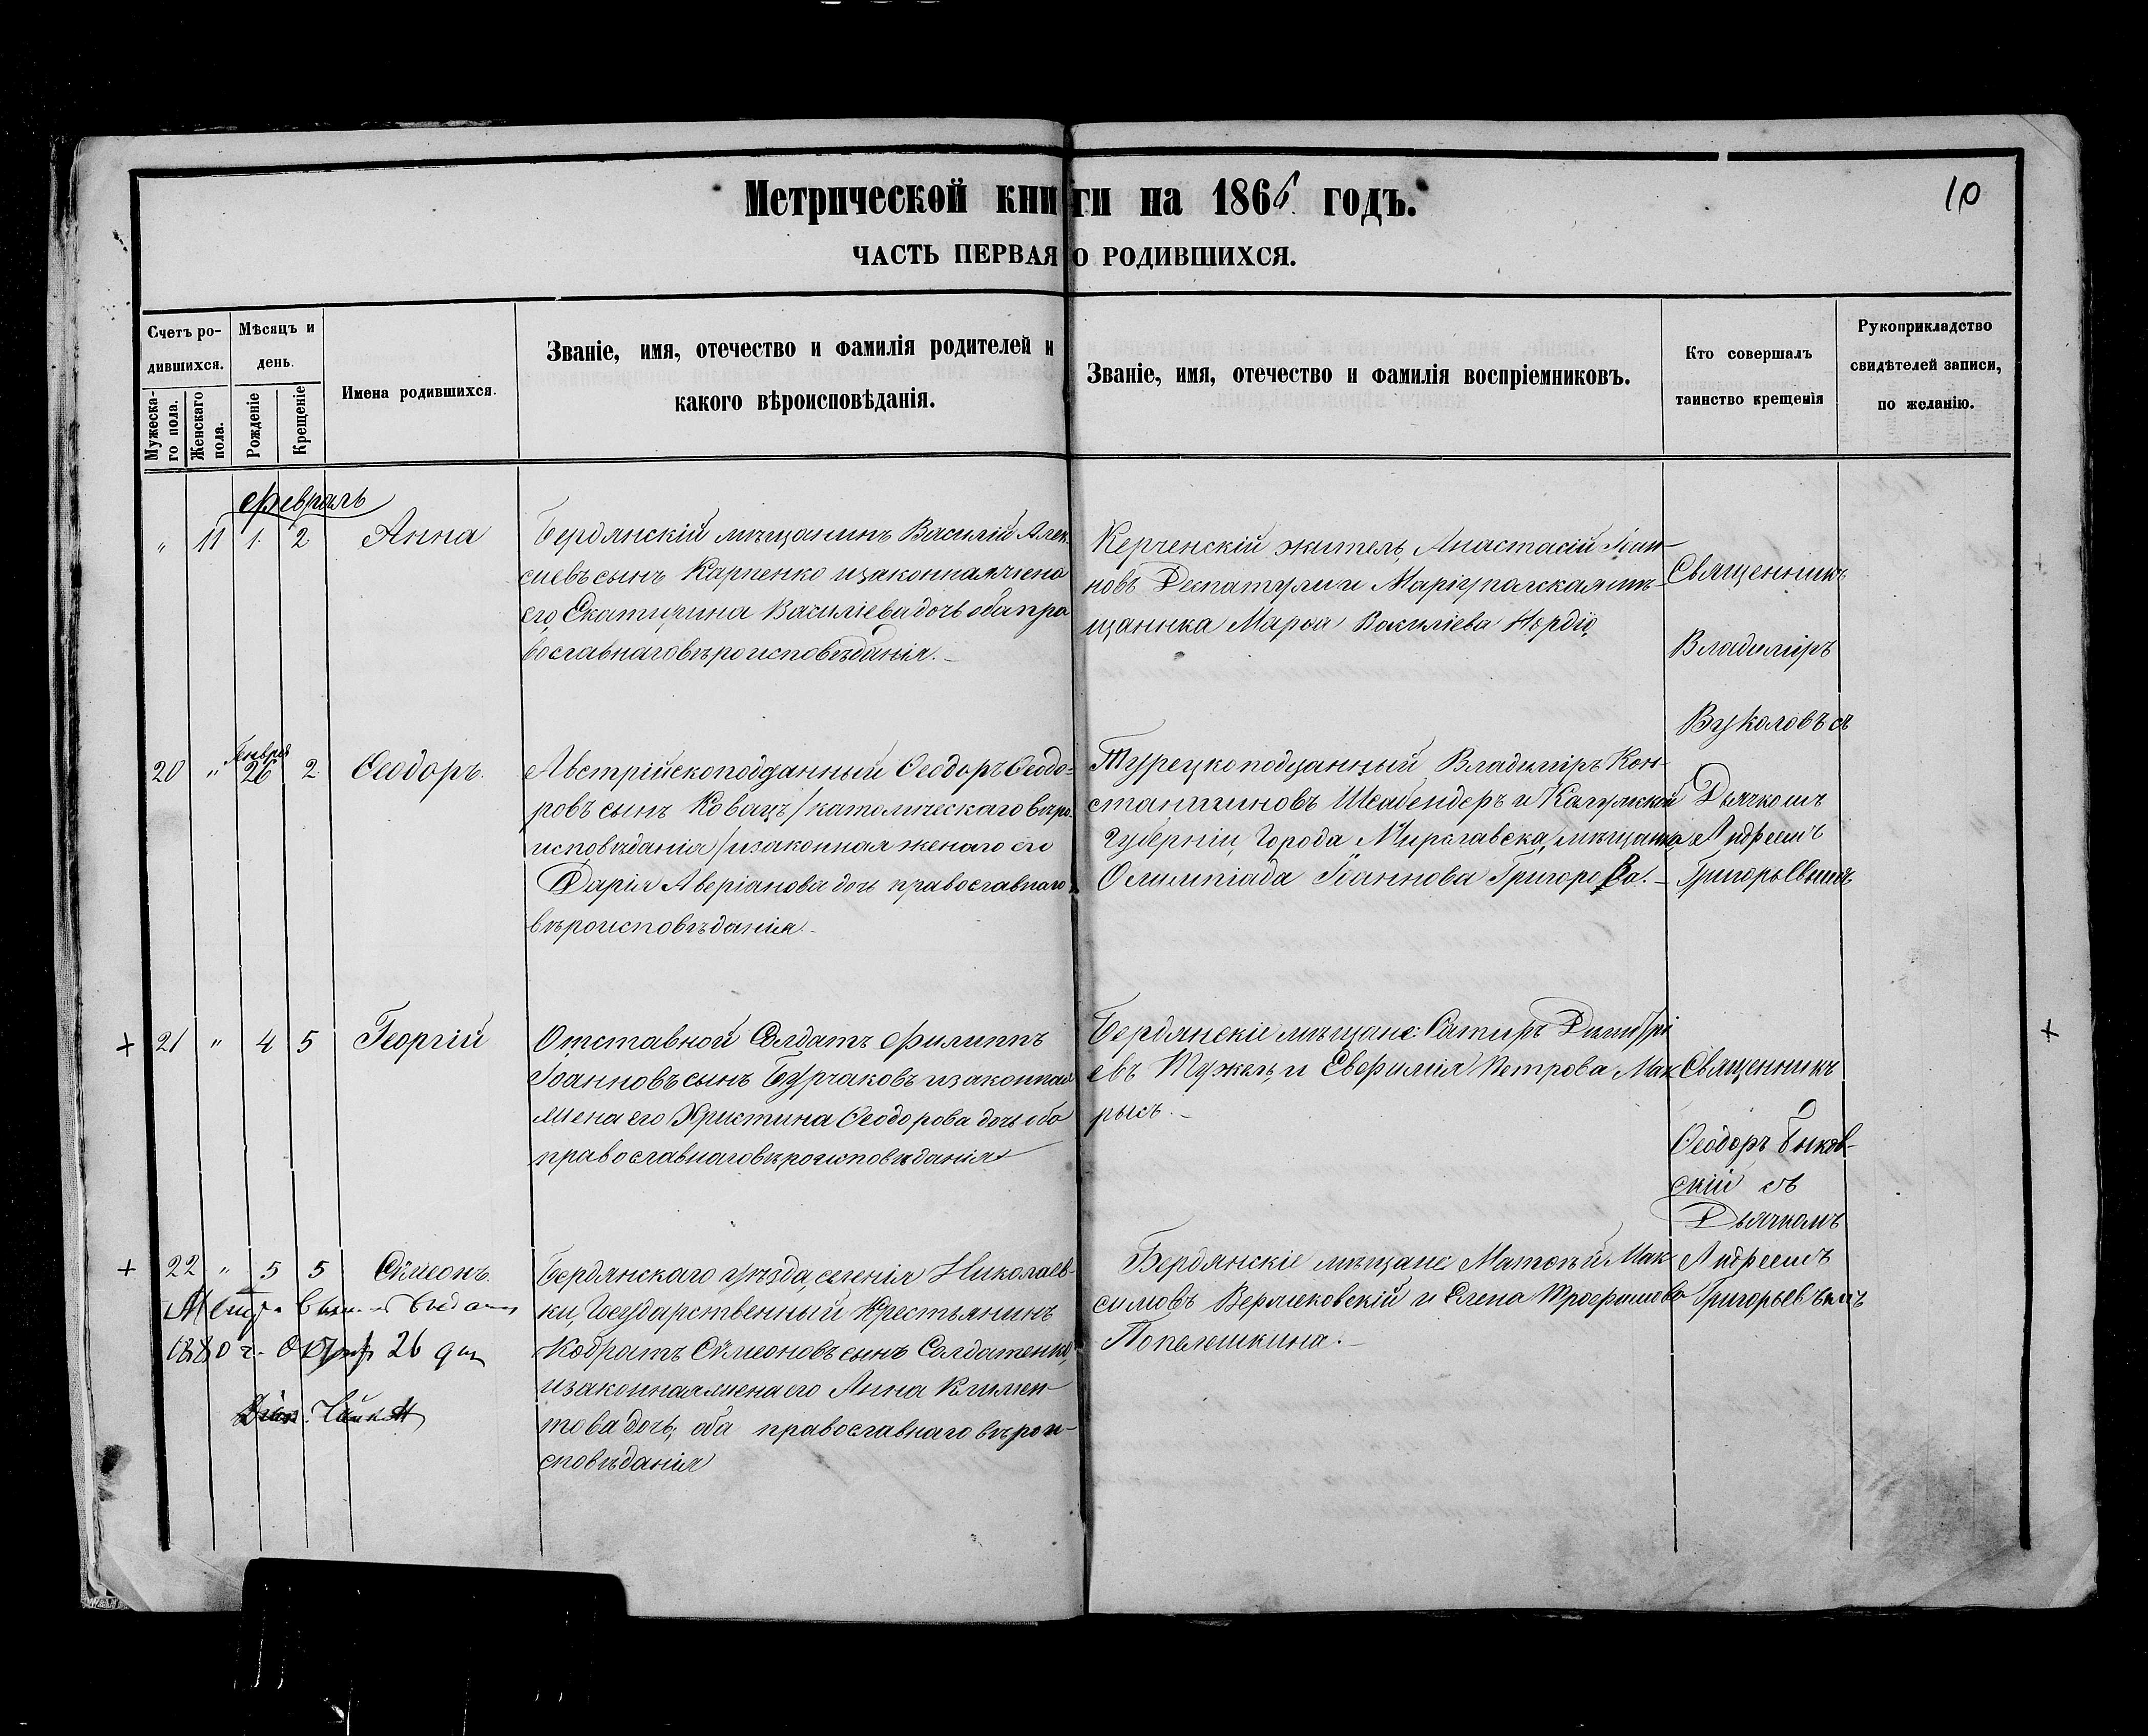 Метрической книги на 1866 годъ.
10
ЧАСТЬ ПЕРВАЯ О РОДИВШИХСЯ.
Счетъ ро-
дившихся.
Мужеска-
го пола.
Женскаго
пола.
Мѣсяцъ и
день.
Рожденіе
Крещеніе
Имена родившихся.
Званіе, имя, отечество и фамилія родителей и
какого вѣроисповѣданія.
Званіе, имя, отечество и фамилія воспріемниковъ.
Кто совершалъ
таинство крещенія
Рукоприкладство
свидѣтелей записи,
по желанію.
Февраль
" 11 1. 2 Анна
Бердянскій мѣщанинъ Василій Алек-
сіевъ сынъ Карпенко и законная жена
его Екатирина Василіева дочь оба пра
вославнаго вѣроисповѣданія.
Керченскій житель, Анастасій Іоан-
новъ Деспатули и Маріупольская мѣ-
щанка Марѳа Василіева
Священникъ
Владиміръ
Вуколовъ съ
Дьячкомъ
Андреемъ
Григорьевымъ
Генваря
20 " 26 2. Ѳеодоръ.
Австрійскоподданный Ѳеодоръ Ѳеодо-
ровъ сынъ Ковацъ /католическаго вѣро-
исповѣданія/ и законная жена его
Дарія Аверіанова дочь православнаго
вѣроисповѣданія.
Турецкоподданный Владиміръ Кон-
стантиновъ и
Губерніи, Города мѣщанка
Олимпіада Іоаннова Григорова.
+ 21 " 4 5 Георгій
Отставной Солдатъ Филиппъ
Іоанновъ сынъ Бурчаковъ и законная
жена его Христина Ѳеодорова дочь оба
православнаго вѣроисповѣданія
Бердянскіе мѣщане: Димитрі
евъ и Евфимія Петрова Мак
рысъ.
+
Священникъ
Ѳеодоръ Быков-
скій съ
Дьячкомъ
Андреемъ
Григорьевымъ
+ 22 " 5 5 Сѵмеонъ.
Бердянскаго уѣзда, селенія Николаев-
ки, Государственный Крестьянинъ
Кодратъ Сѵмеоновъ сынъ Солдатенко,
и законная жена его Анна Климен-
това дочь, оба православнаго вѣрои-
сповѣданія
Бердянскіе мѣщане Матѳей Мак-
симовъ и Елена Трофимова
Попелюшкина.
1880 г. 26 дня